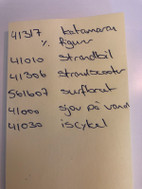 41317 katamaran
% figur
41010 strandbil
41306 strandscooter
561607 surfbræt
41000 sjov på vand
41030 iscykel